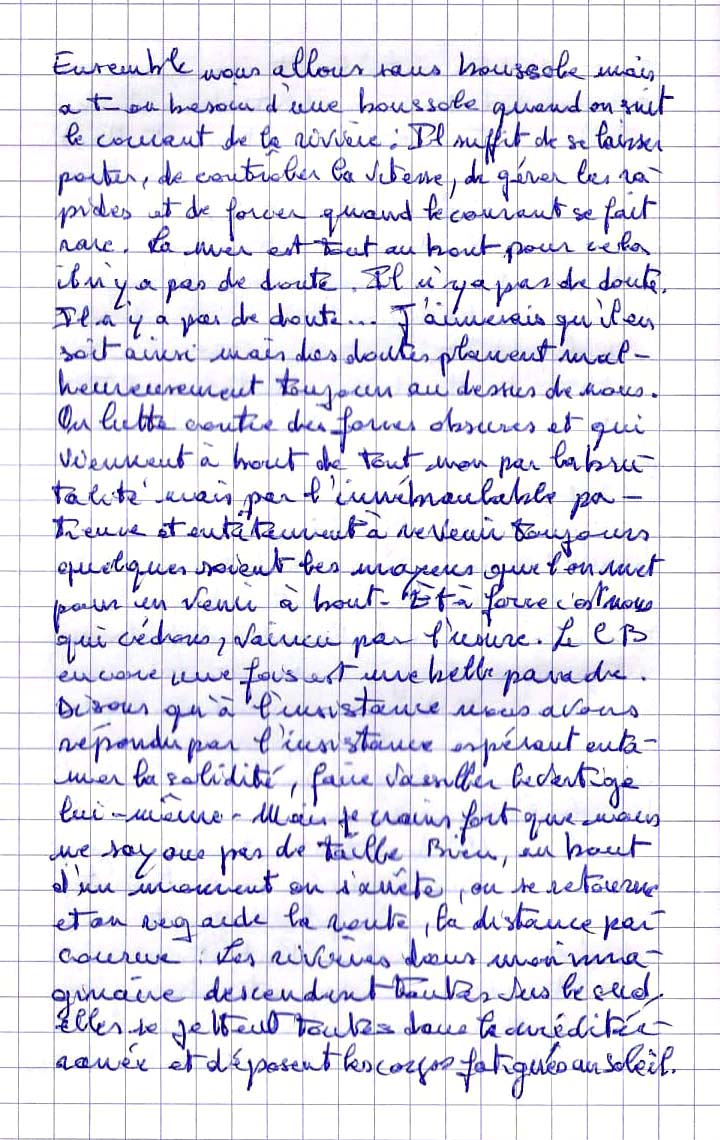 Ensemble nous allons sans boussole mais
a t-on besoin d'une boussole quand on suit
le courant de la rivière : Il suffit de se laisser
porter, de contrôler la vitesse, de gérer les ra-
pides et de forcer quand le courant se fait
rare. La mer est tout au bout pour cela
il n'y a pas de doute. Il n'y a pas de doute.
Il n'y a pas de doute... J'aimerais qu'il en
soit ainsi mais des doutes planent mal-
heureusement toujours au dessus de nous.
On lutte contre des forces obscures et qui
viennent à bout de tout non par la bru-
talité mais par l'inébranlable pa-
tience et entêtement à revenir toujours
quelques soient les moyens que l'on met
pour en venir à bout. Et à force c'est nous
qui cédons, vaincu par l'usure. Le CB
encore une fois est une belle parade.
Disons qu'à l'insistance nous avons
répondu par l'insistance espérant enta-
mer la solidité, faire vaciller le vertige
lui-même. Mais je crains fort que nous
ne soyons pas de taille. Bien, au bout
d'un moment on s'arrête, on se retourne
et on regarde la route, la distance par-
courue. Les rivières dans mon ima-
ginaire descendent toutes vers le sud,
elles se jettent toutes dans la méditér-
ranée et déposent les corps fatigués au soleil.